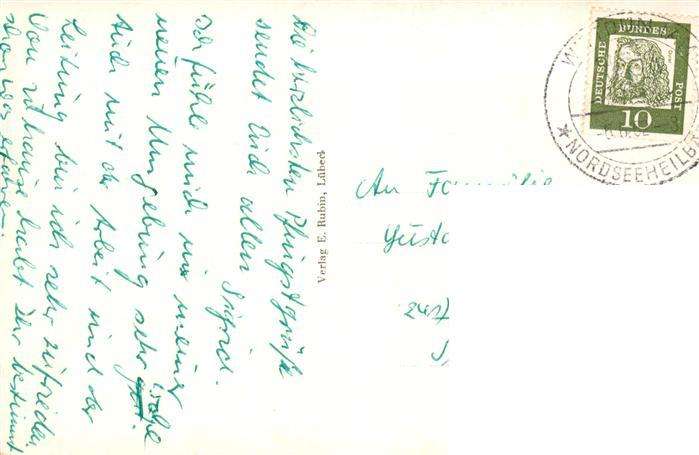 Die herzlichsten Pfingstgrüße
sendet Euch allen Sigrid.
Ich fühle mich in meiner
neuen Umgebung sehr wohl
Auch mit der Arbeit und der
Leitung bin ich sehr zufrieden
Von zuhause habt Ihr bestimmt
schon was erfahren.
Verlag E. Rubin, Lübeck
DEUTSCHE BUNDES POST
10
NORDSEEHEILB
An Familie
Gusta